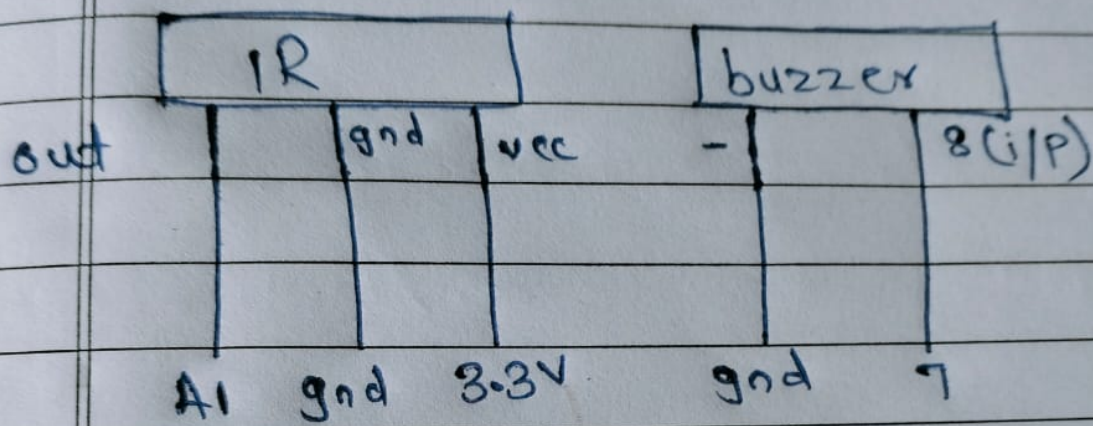 IR buzzer
out gnd vcc - 8(i/p)
A1 gnd 3.3V gnd 7